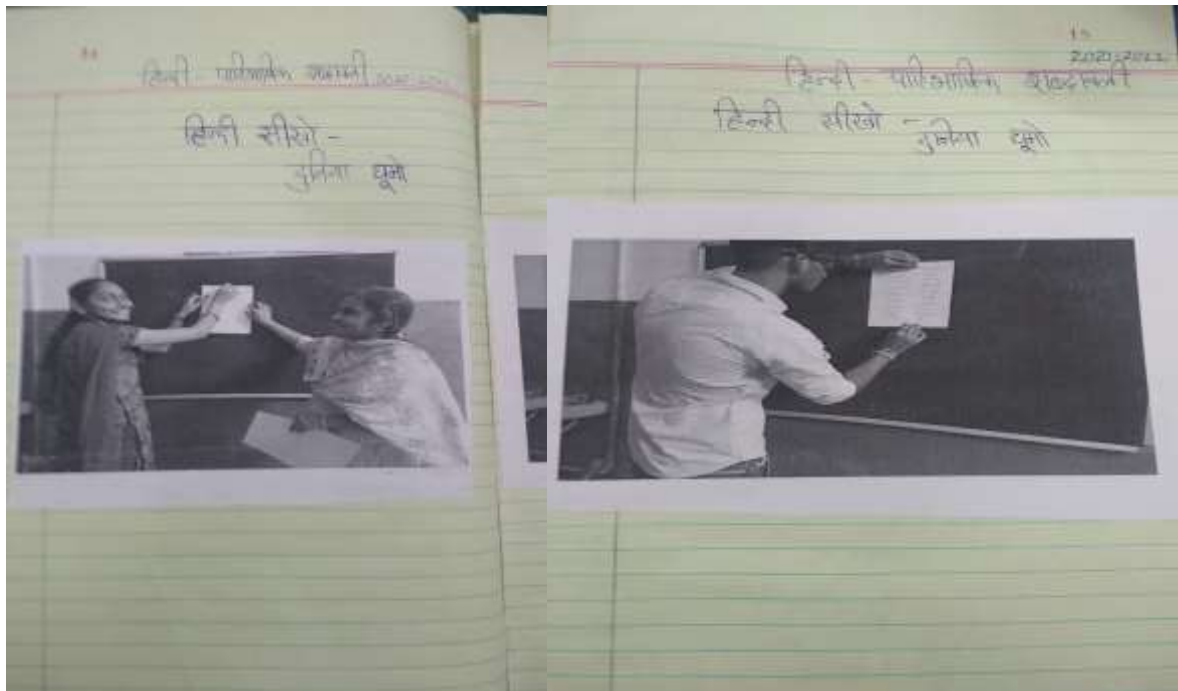 हिन्दी - पारिभाषिक शब्दावली
हिन्दी सीखो -
दुनिया घूमो
2021-2022
हिन्दी - पारिभाषिक शब्दावली
हिन्दी सीखो -
दुनिया घूमो